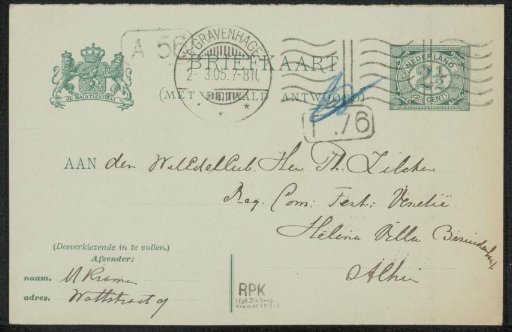 A 56
'S GRAVENHAGE
2-3.05.7-8N.
BRIEFKAART
(MET BETAALD ANTWOORD)
NEDERLAND
2½
CENT
JE MAINTIENDRAI
76
AAN den WelEdelGeb. Heer Ph. Zilcken
Reg. Com. Tent: Venetië
Helena Villa
(Desverkiezende in te vullen.)
Afzender:
naam. M Kramer
adres. Wattstraat 9
RPK